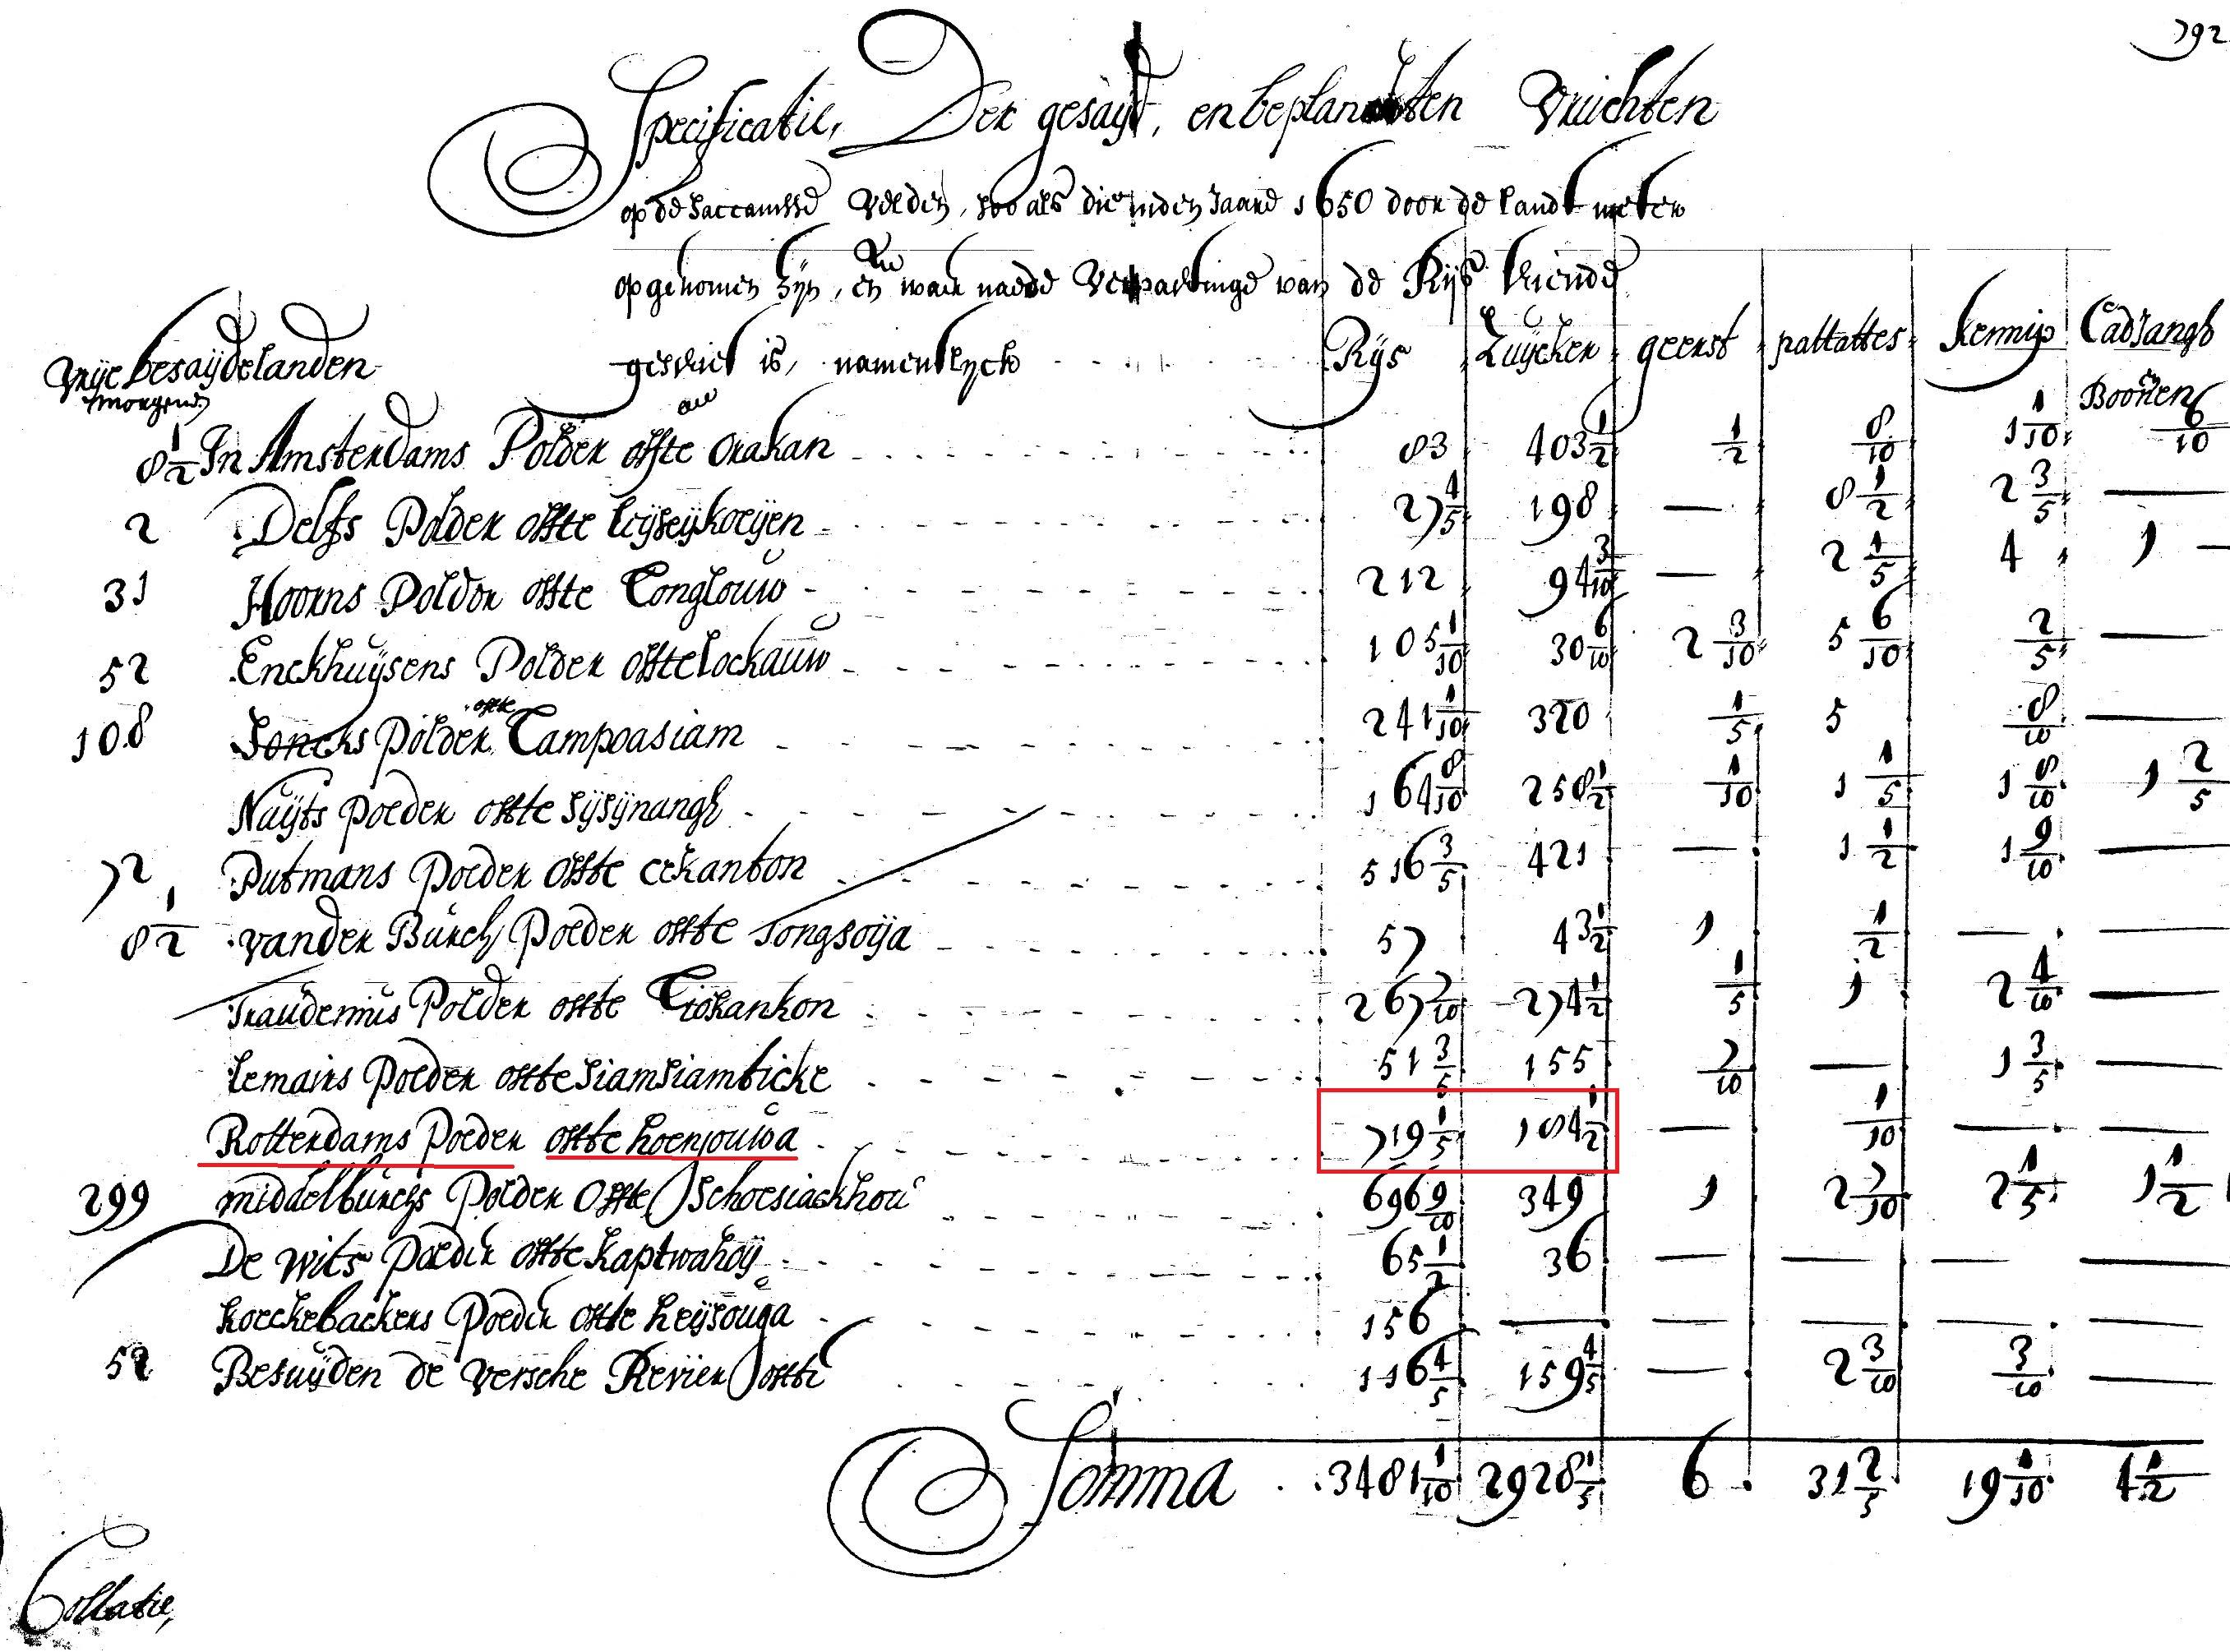 792
Specificatie, Der gesaijd, en beplandten Vruchten
op de Saccamsse Velden, soo als die in den Jaare 1650 door de landt meter
opgenomen sijn, en waer naede Verpachtinge van de Rijs tiende
Vrije besaijdelanden gestelt is, namentlyck Rijs Zuijcker geerst pattattes kennip Cadjangh
morgens Boonen
8 1/2 In Amsterdams Polder offte Orakan 83 403 1/2 1/2 8/10 1 1/10 6/10
2 Delfs Polder offte 27 4/5 198 — 8 1/2 2 3/5 —
31 Hoorns Polder offte Conglouw 212 94 3/10 — 2 1/5 4 1 —
52 Enckhuijsens Polder offte Lockauw 105 1/10 30 6/10 2 3/10 5 6/10 2/5 —
108 Soncks Polder offte Campoasiam 241 1/10 320 1/5 5 8/10 —
Naijts Polder offte Sijsijnangh 164 8/10 250 1/2 1/10 1 1/5 1 8/10 1 2/5
72 Putmans Polder offte Cekanton 516 3/5 421 — 1 1/2 1 9/10 —
8 1/2 vander Burch Polder offte Songsoija 57 43 1/2 1 1/2 — —
Traudenius Polder offte Ciokankon 267 7/10 274 1/2 1/5 1 2 4/10 —
Lemairs Polder offte Siamsiamticke 51 3/5 155 7/10 — 1 3/5 —
Rotterdams Polder offte hoenjouwa 719 1/5 184 1/2 — 1/10 — —
299 middelburchs Polder Offte Schoesiackhou 696 9/10 349 1 2 7/10 2 1/5 1 1/2
De Wits Polder offte Kaptwahoij 65 1/2 36 — — — —
Koeckebackers Polder offte heijsouga 156 — — — — —
52 Besuijden de Versche Revier offte 116 4/5 159 4/5 — 2 3/10 3/10 —
Somma 3481 1/10 2928 1/5 6 31 2/5 19 1/10 4 1/2
Collatie,